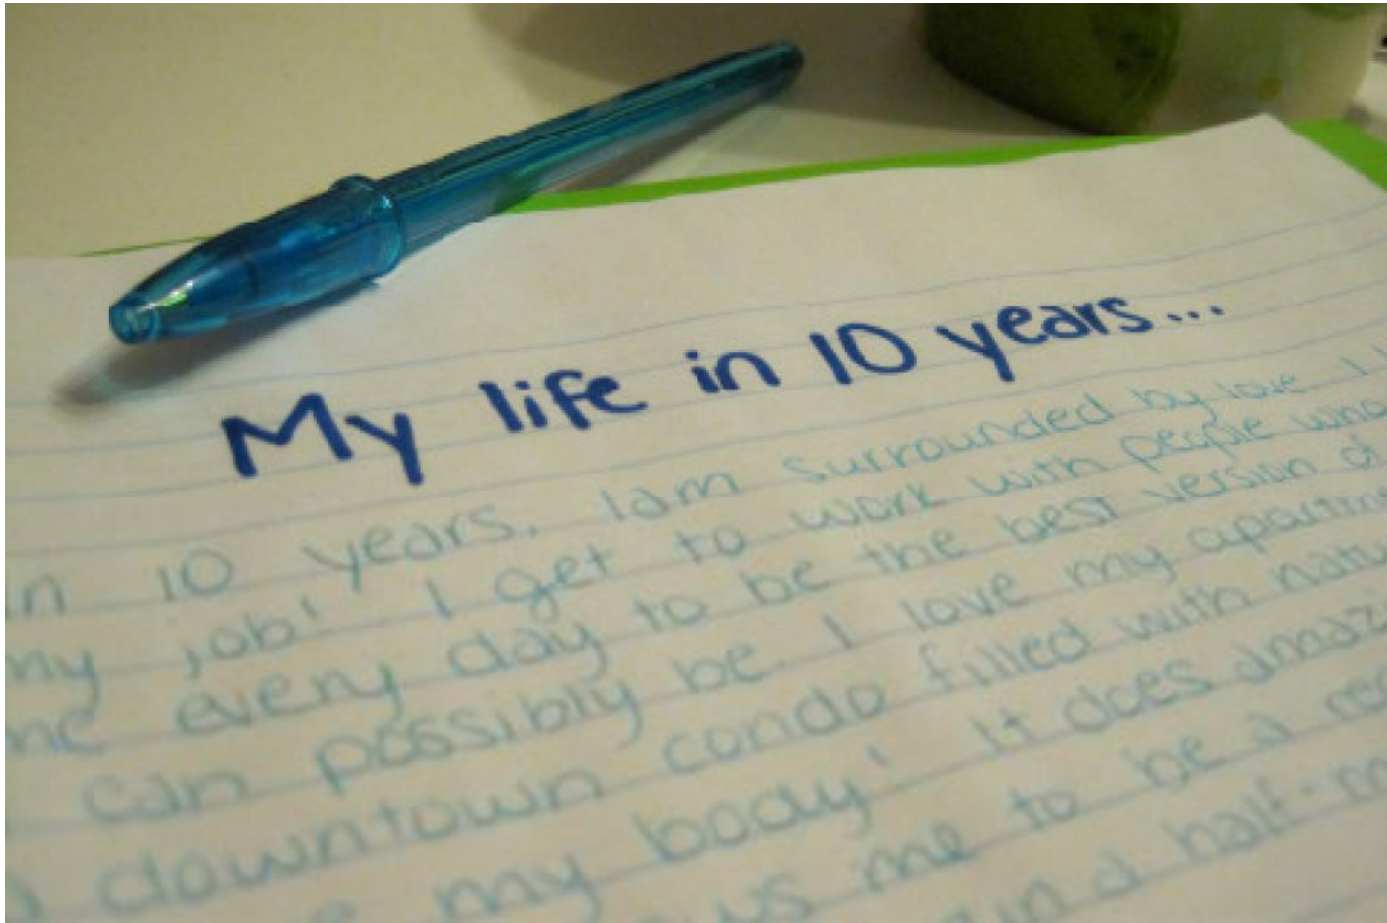 My life in 10 years...
in 10 years. I am surrounded by love. I
my job! I get to work with people who
me every day to be the best version of
I can possibly be. I love my apartme
downtown condo filled with natu
my body! It does amazi
me to be a
in a half-m